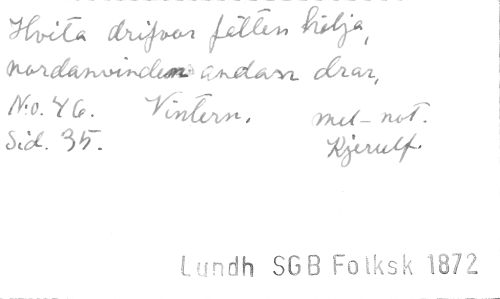 Hvita drifvor fälten hölja,
nordanvinden andan drar,
No. 46. Vintern. mel-not.
Sid. 35. Kjerulf.
Lundh SGB Folksk 1872